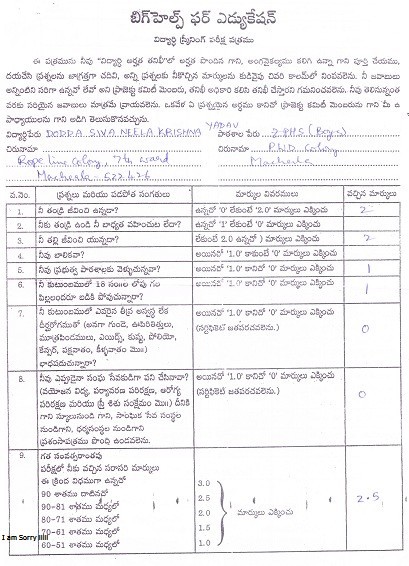 బిగ్‌హెల్ప్ ఫర్ ఎడ్యుకేషన్
విద్యార్థి స్క్రీనింగ్ పరీక్ష పత్రము
ఈ పత్రమును నీవు "విద్యార్థి అర్హత తనిఖీ"లో అర్హత పొందిన గాని, అంగవైకల్యము కలిగి ఉన్నా గాని పూర్తి చేయుము,
దయచేసి ప్రశ్నలను జాగ్రత్తగా చదివి, అన్ని ప్రశ్నలకు నీకొచ్చిన మార్కులను కుడివైపు చివరి కాలమ్‌లో నింపవలెను. నీ జవాబులు
అన్నింటిని సరిగా ఉన్నవో లేవో అని ప్రాజెక్టు కమిటీ మెంబరు, తనిఖీ అధికారి కలిసి తనిఖీ చేస్తారని గమనించవలెను. నీవు తెలిసినంత
వరకు సరియైన జవాబులు మాత్రమే వ్రాయవలెను. ఒకవేళ ఏ ప్రశ్నయైన అర్థము కానిచో ప్రాజెక్ట్ కమిటీ మెంబరును గాని మీ ఉ
పాధ్యాయులను గాని అడిగి తెలుసుకొనవచ్చును.
విద్యార్థిపేరు DODDA SIVA NEELA KRISHNA YADAV పాఠశాల పేరు Z.P.H.S (Boys)
చిరునామా Rope line Colony, 7th ward చిరునామా P.W.D. Colony
Macherla 522426 Macherla
వ.నెం. ప్రశ్నలు మరియు పదపోత సంగతులు మార్కుల వివరములు వచ్చిన మార్కులు
1. నీ తండ్రి జీవించి ఉన్నదా? ఉన్నచో '0' లేకుంటే '2.0' మార్కులు ఎక్కించు 2
2. నీకు తండ్రి ఉండి నీ బాధ్యత వహించుట లేదా? ఉన్నచో '1' లేకుంటే '0' మార్కులు ఎక్కించు
3. నీ తల్లి జీవించి యున్నదా? లేకుంటే 2.0 ఉన్నచో ) మార్కులు ఎక్కించు 2
4. నీవు బాలికవా? అయినచో '1.0' కాకుంటే '0' మార్కులు ఎక్కించు
5. నీవు ప్రభుత్వ పాఠశాలకు వెళ్ళుచున్నవా? అయినచో '1.0' కానిచో '0' మార్కులు ఎక్కించు 1
6. నీ కుటుంబములో 18 సం॥ల లోపు గల
పిల్లలందరూ బడికి పోవుచున్నారా? అయినచో '1.0' కానిచో '0' మార్కులు ఎక్కించు 1
7. నీ కుటుంబములో ఎవరైన తీవ్ర అస్వస్థ లేక
దీర్ఘరోగముతో (అనగా గుండె, ఊపిరితిత్తులు,
మూత్రపిండములు, ఎయిడ్స్, కుష్టు, పోలియో,
కేన్సర్, పక్షవాతం, కీళ్ళవాతం మొ॥)
బాధపడుచున్నారా? అయినచో '1.0' కానిచో '0' మార్కులు ఎక్కించు
(సర్టిఫికెట్ జతపరచవలెను.) 0
8. నీవు ఎప్పుడైనా సంఘ సేవకుడిగా పని చేసినావా?
(వయోజన విద్య, పర్యావరణ పరిరక్షణ, ఆరోగ్య
పరిరక్షణ మరియు స్త్రీ శిశు సంక్షేమం మొ॥) దీనికి
గాని స్కూలునుండి గాని, సాంఘిక సేవ సంస్థల
నుండిగాని, ధర్మసంస్థల నుండిగాని
ప్రశంసాపత్రము పొంది ఉండవలెను. అయినచో '1.0' కానిచో '0' మార్కులు ఎక్కించు
(సర్టిఫికెట్ జతపరచవలెను.) 0
9. గత సంవత్సరాంతపు
పరీక్షలో నీకు వచ్చిన సరాసరి మార్కులు
ఈ క్రింద విధముగా ఉన్నచో
90 శాతము దాటినచో 3.0
90-81 శాతము మధ్యలో 2.5
80-71 శాతము మధ్యలో 2.0 మార్కులు ఎక్కించు 2.5
70-61 శాతము మధ్యలో 1.5
60-51 శాతము మధ్యలో 1.0
I am Sorry !!!!!